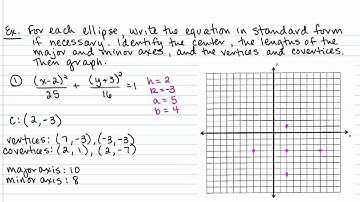 Ex. For each ellipse, write the equation in standard form
if necessary. Identify the center, the lengths of the
major and minor axes, and the vertices and covertices.
Then graph.
① (x-2)²/25 + (y+3)²/16 = 1
h = 2
k = -3
a = 5
b = 4
C: (2, -3)
vertices: (7, -3), (-3, -3)
covertices: (2, 1), (2, -7)
major axis: 10
minor axis: 8